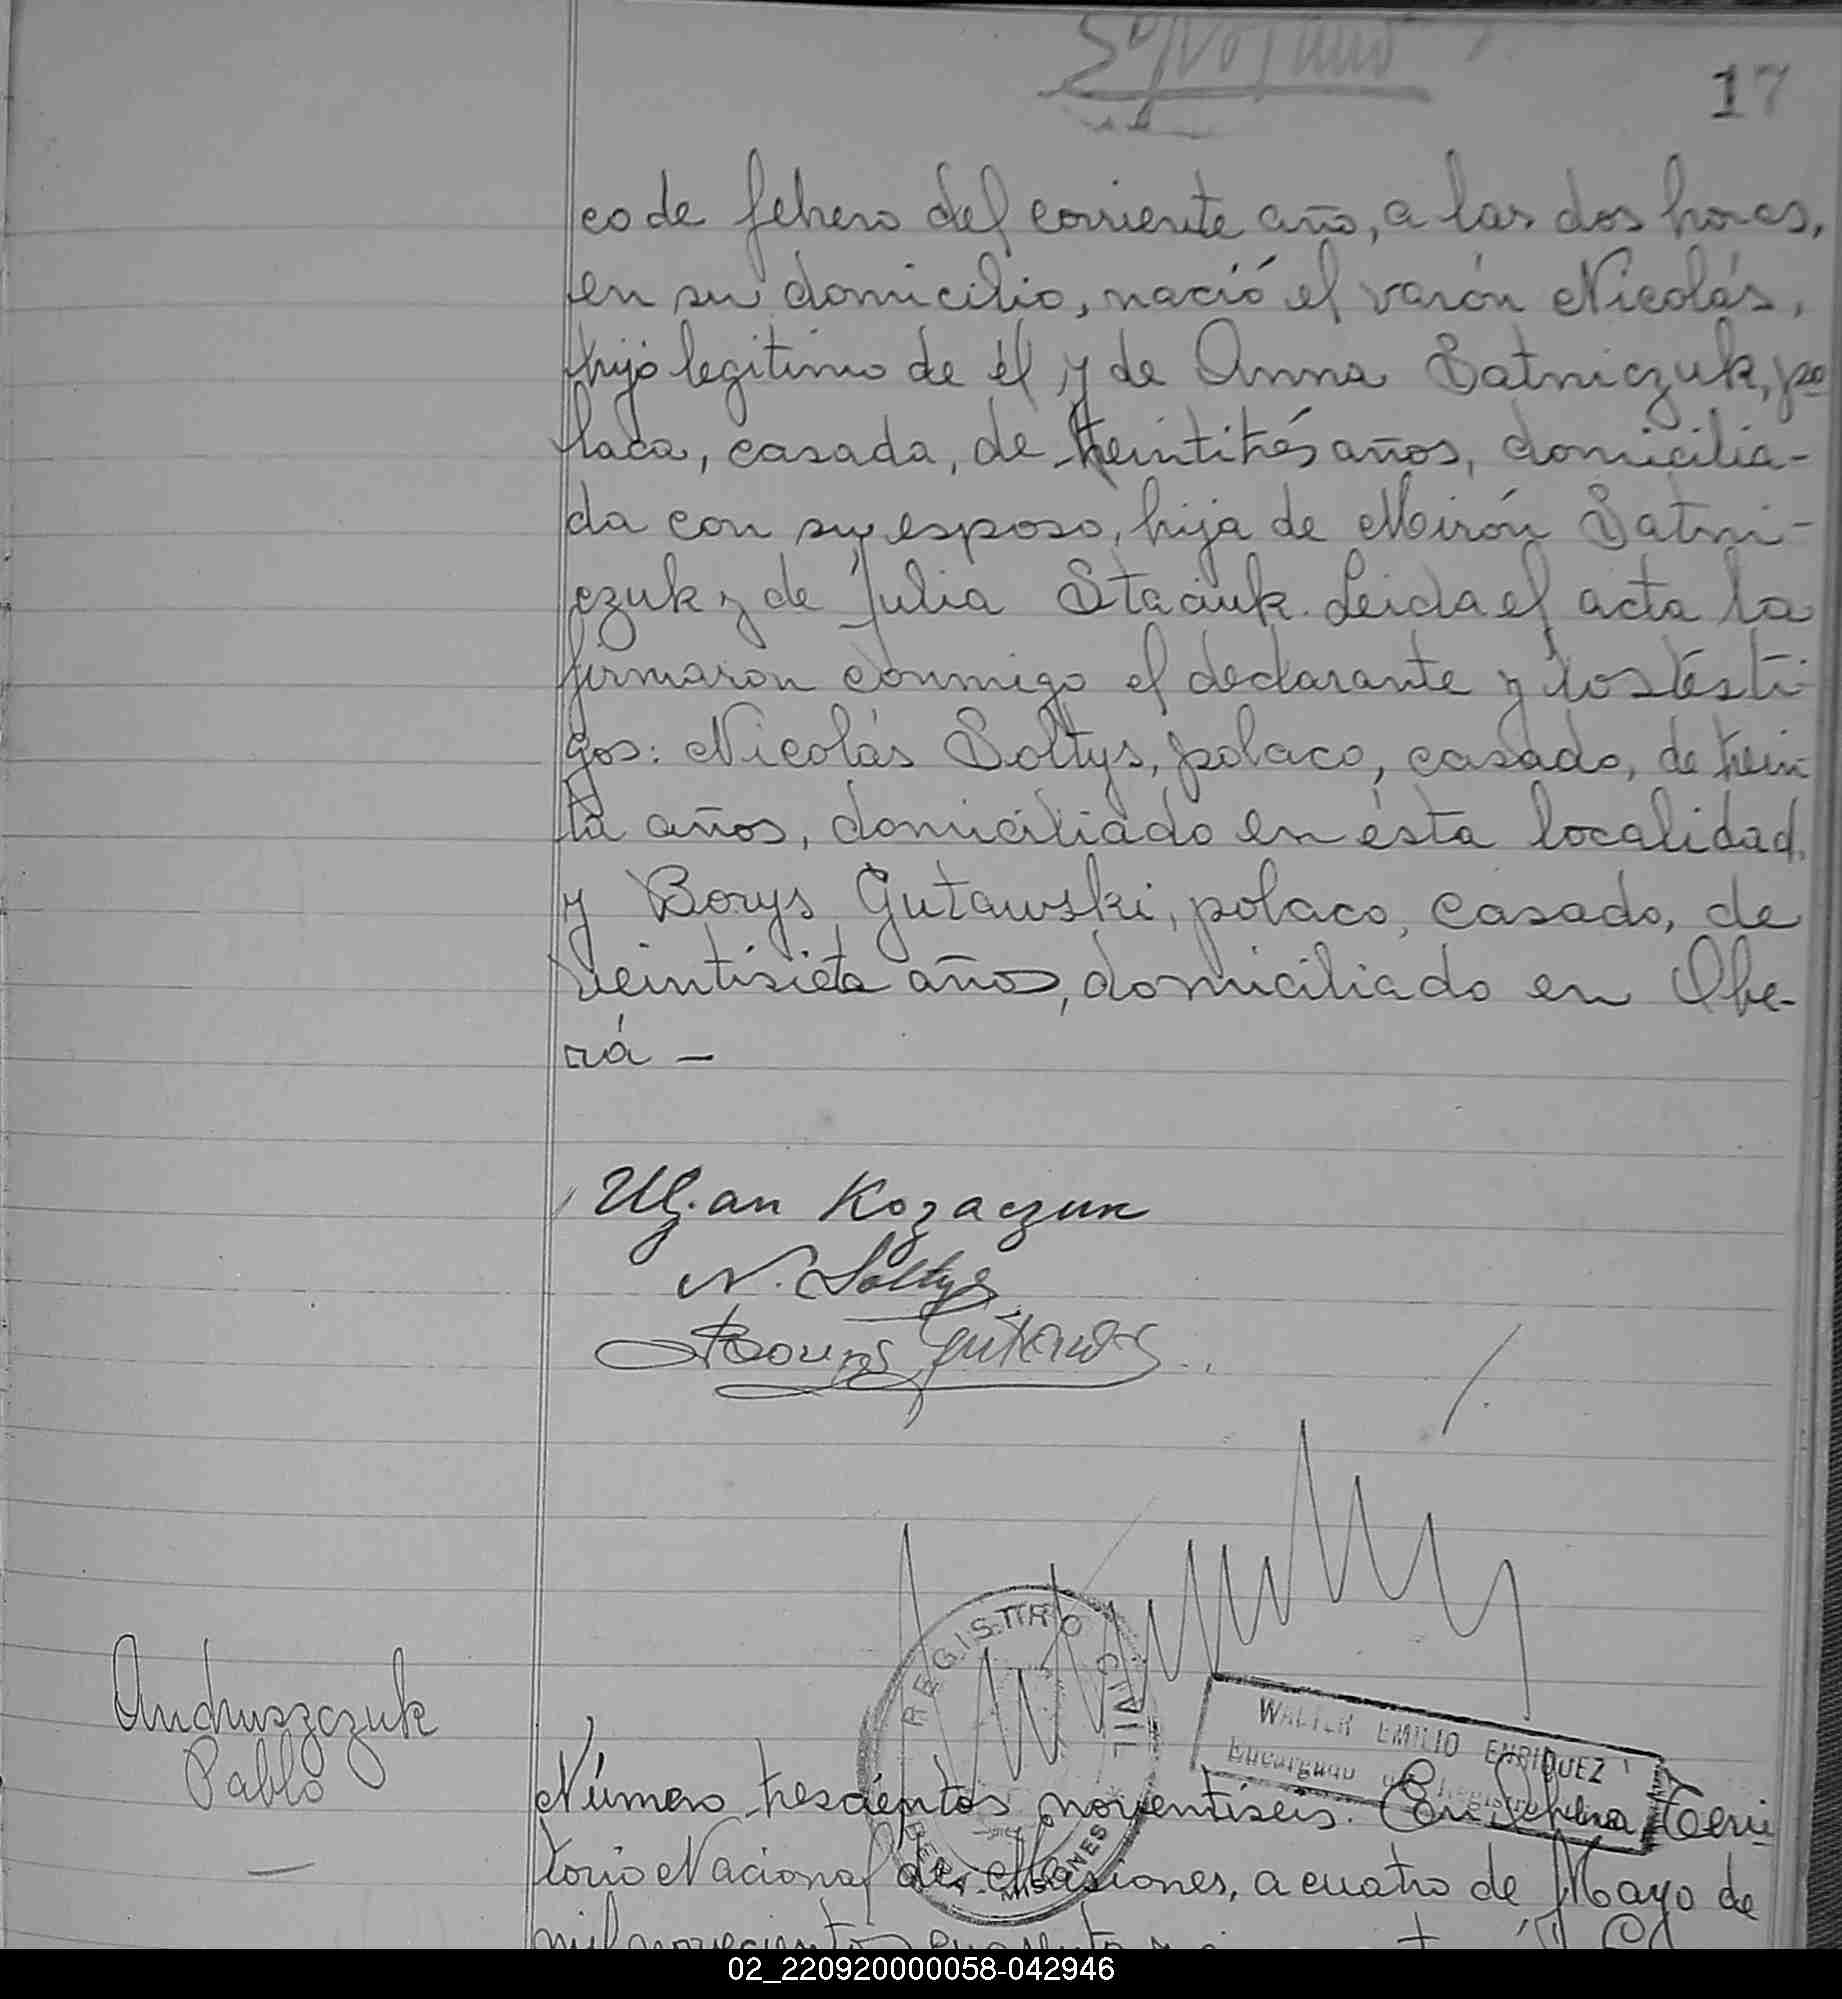 17
co de febrero del corriente año, a las dos horas,
en su domicilio, nació el varón Nicolás,
hijo legitimo de él y de Anna Satniczuk, po
laca, casada, de treintitrés años, domicilia-
da con su esposo, hija de Mirón Satni-
czuk y de Julia Staciuk. Leida el acta la
firmaron conmigo el declarante y los testi-
gos: Nicolás Soltys, polaco, casado, de trein
ta años, domiciliado en ésta localidad,
y Borys Gutawski, polaco, casado, de
veintisiete años, domiciliado en Obe-
rá -
Kozaczuk
N. Soltys
REGISTRO CIVIL
MISIONES
WALTER EMILIO ENRIQUEZ
Andruszczuk
Pablo
Número trescientos noventiseis. En Terri
torio Nacional de Misiones, a cuatro de Mayo de
mil novecientos
02_220920000058-042946